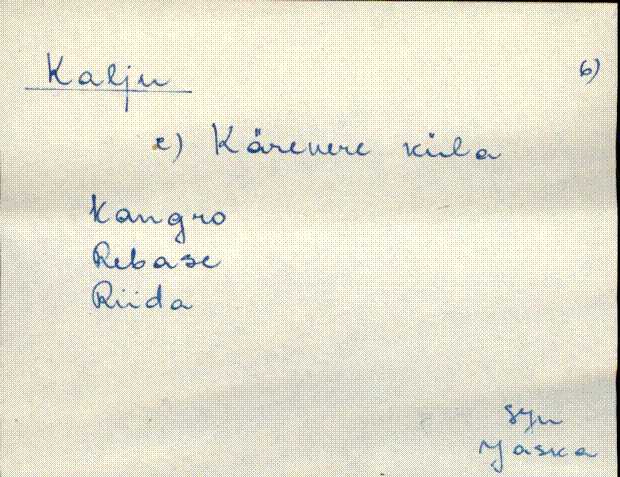 Kalju
6)
e) Kärevere küla
Kangro
Rebase
Riida
SJn
Jaska